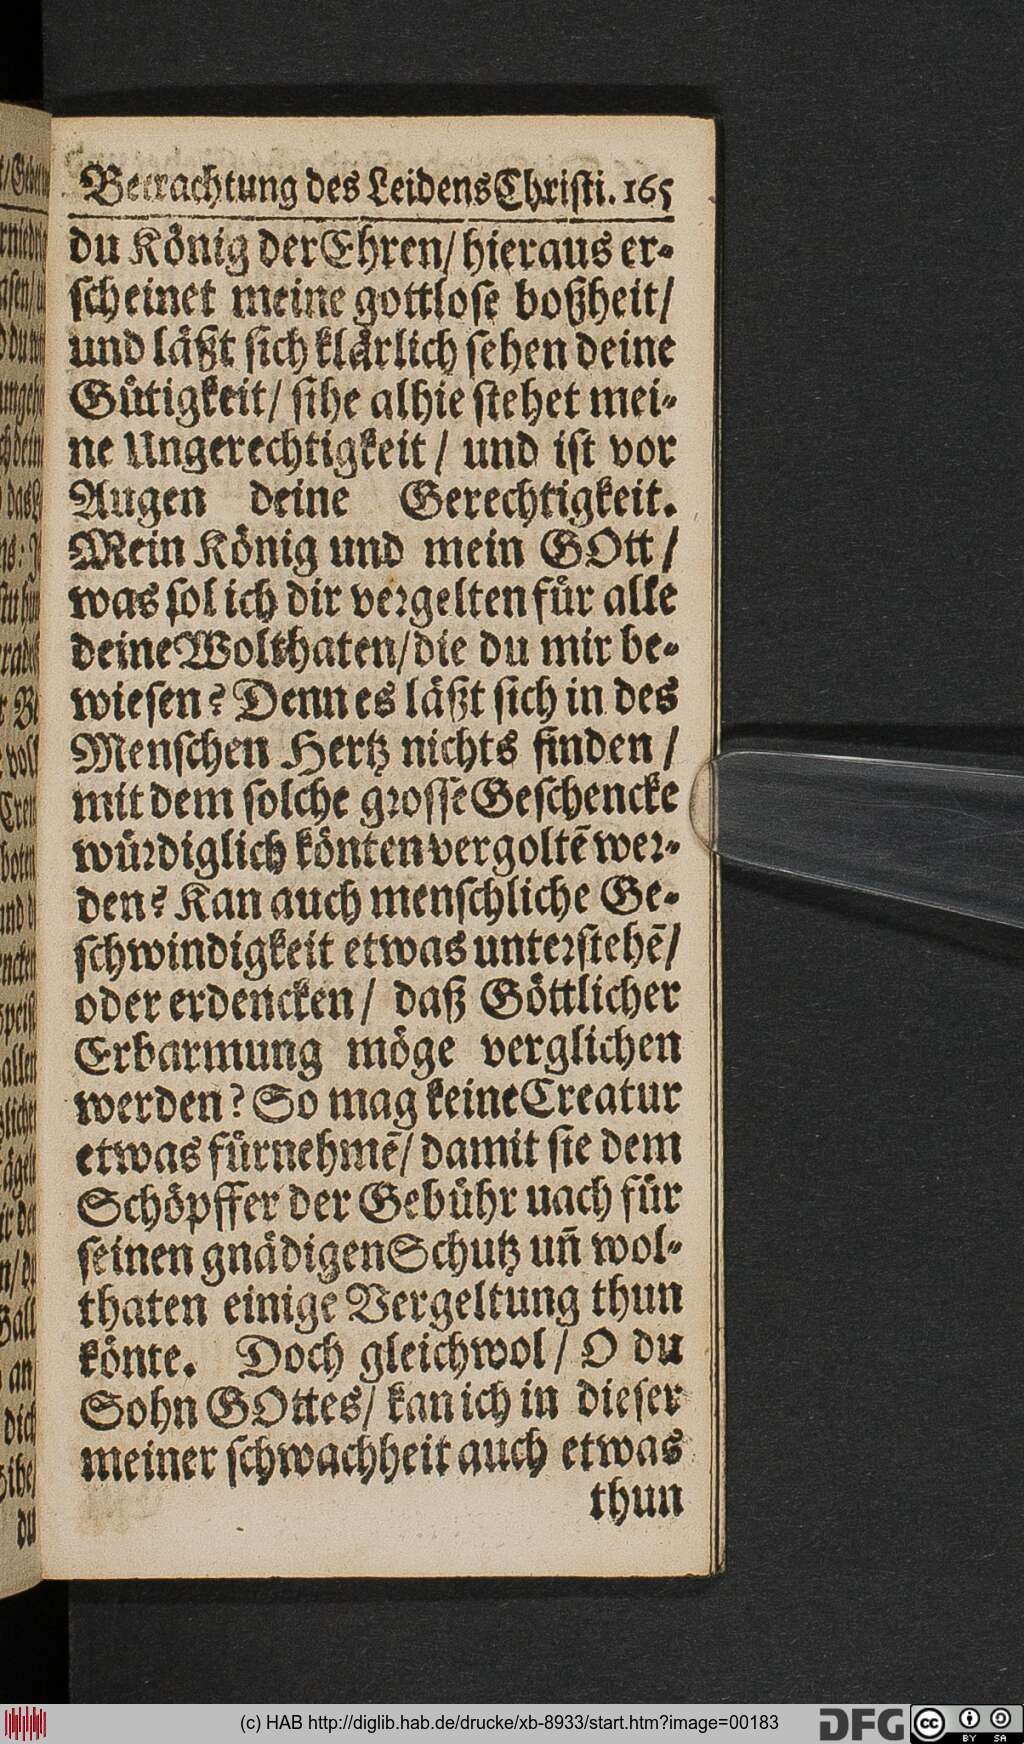 Betrachtung des Leidens Christi. 165
du König der Ehren / hieraus er-
scheinet meine gottlose boßheit /
und läßt sich klärlich sehen deine
Gütigkeit / sihe alhie stehet mei-
ne Ungerechtigkeit / und ist vor
Augen deine Gerechtigkeit.
Mein König und mein GOtt /
was sol ich dir vergelten für alle
deine Wolthaten / die du mir be-
wiesen? Denn es läßt sich in des
Menschen Hertz nichts finden /
mit dem solche grossē Geschencke
würdiglich könten vergoltē wer-
den? Kan auch menschliche Ge-
schwindigkeit etwas unterstehē /
oder erdencken / daß Göttlicher
Erbarmung möge verglichen
werden? So mag keine Creatur
etwas fürnehmē / damit sie dem
Schöpffer der Gebühr uach für
seinen gnädigen Schutz uñ wol-
thaten einige Vergeltung thun
könte. Doch gleichwol / O du
Sohn GOttes / kan ich in dieser
meiner schwachheit auch etwas
thun
(c) HAB http://diglib.hab.de/drucke/xb-8933/start.htm?image=00183
DFG
cc BY SA